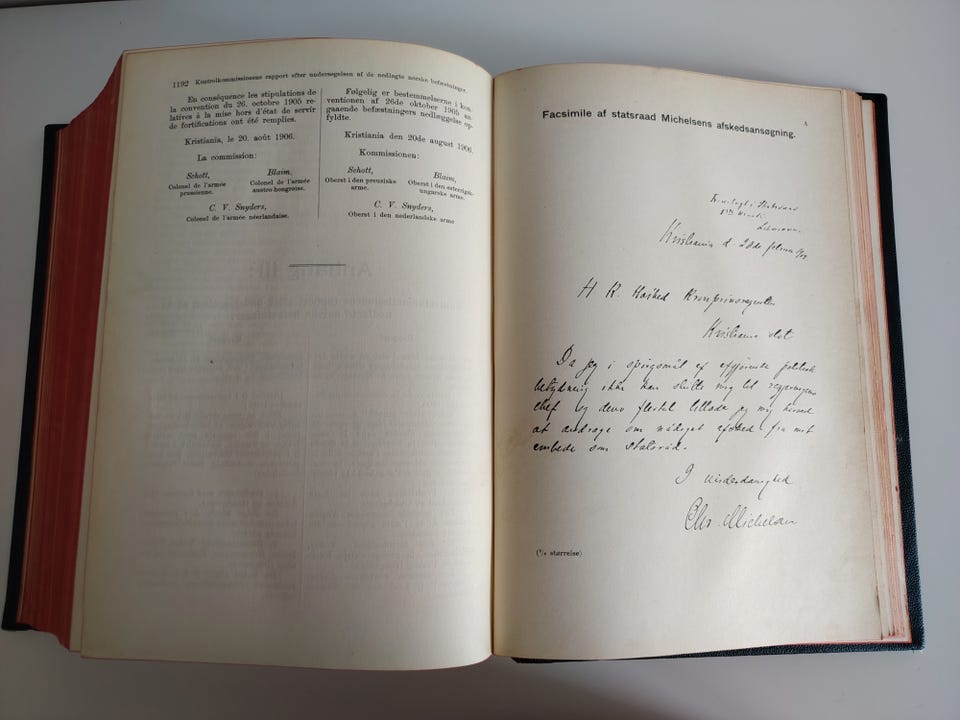 1192 Kontrolkommissionens rapport efter undersøgelsen af de nedlagte norske befæstninger.
En conséquence les stipulations de
la convention du 26. octobre 1905 re-
latives à la mise hors d'état de servir
de fortifications ont été remplies.
Kristiania, le 20. août 1906.
La commission:
Schott,
Colonel de l'armée
prussienne.
Blaim,
Colonel de l'armée
austro-hongroise.
C. V. Snyders,
Colonel de l'armée néerlandaise.
Følgelig er bestemmelserne i kon-
ventionen af 26de oktober 1905 an-
gaaende befæstningers nedlæggelse op-
fyldte.
Kristiania den 20de august 1906.
Kommissionen:
Schott,
Oberst i den preusiske
arme.
Blaim,
Oberst i den østerrigsk-
ungarske arme.
C. V. Snyders,
Oberst i den nederlandske arme
A
Facsimile af statsraad Michelsens afskedsansøgning.
Fremlagt i Statsraad
Lehmann.
Kristiania d. 28de februar
H K. Høihed Kronprinsregenten
Kristiania slot
Da jeg i spørgsmål af afgjørende politisk
betydning ikke kan slutte mig til regjeringens
chef og dens flertal tillade jeg mig herved
at andrage om nådigst afsked fra mit
embede som statsråd.
I underdanighed
Chr. Michelsen
(¹/₂ størrelse)